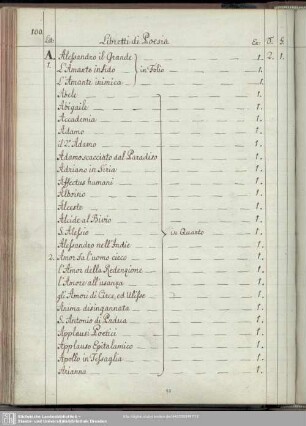 100
Litt: Libretti di Poesia Ex: T. S.
A. Alessandro il Grande 1. 2. 1.
1. L'Amante infido in Folio 1.
L'Amante inimica 1.
Abele 1.
Abigaile 1.
Accademia 1.
Adamo 1.
il 2º Adamo 1.
Adamo scacciato dal Paradiso 1.
Adriano in Siria 1.
Affectus humani 1.
Alboino 1.
Alceste 1.
Alcide al Bivio 1.
S. Alessio in Quarto 1.
Alessandro nell'Indie 1.
2. Amor fa l'uomo cieco 1.
l'Amor della Redenzione 1.
l'Amore all'usanza 1.
gli Amori di Circe, ed Ulisse 1.
Anima disingannata 1.
S. Antonio di Padua 1.
Applausi Poetici 1.
Applauso Epitalamico 1.
Apollo in Tessaglia 1.
Arianna 1.